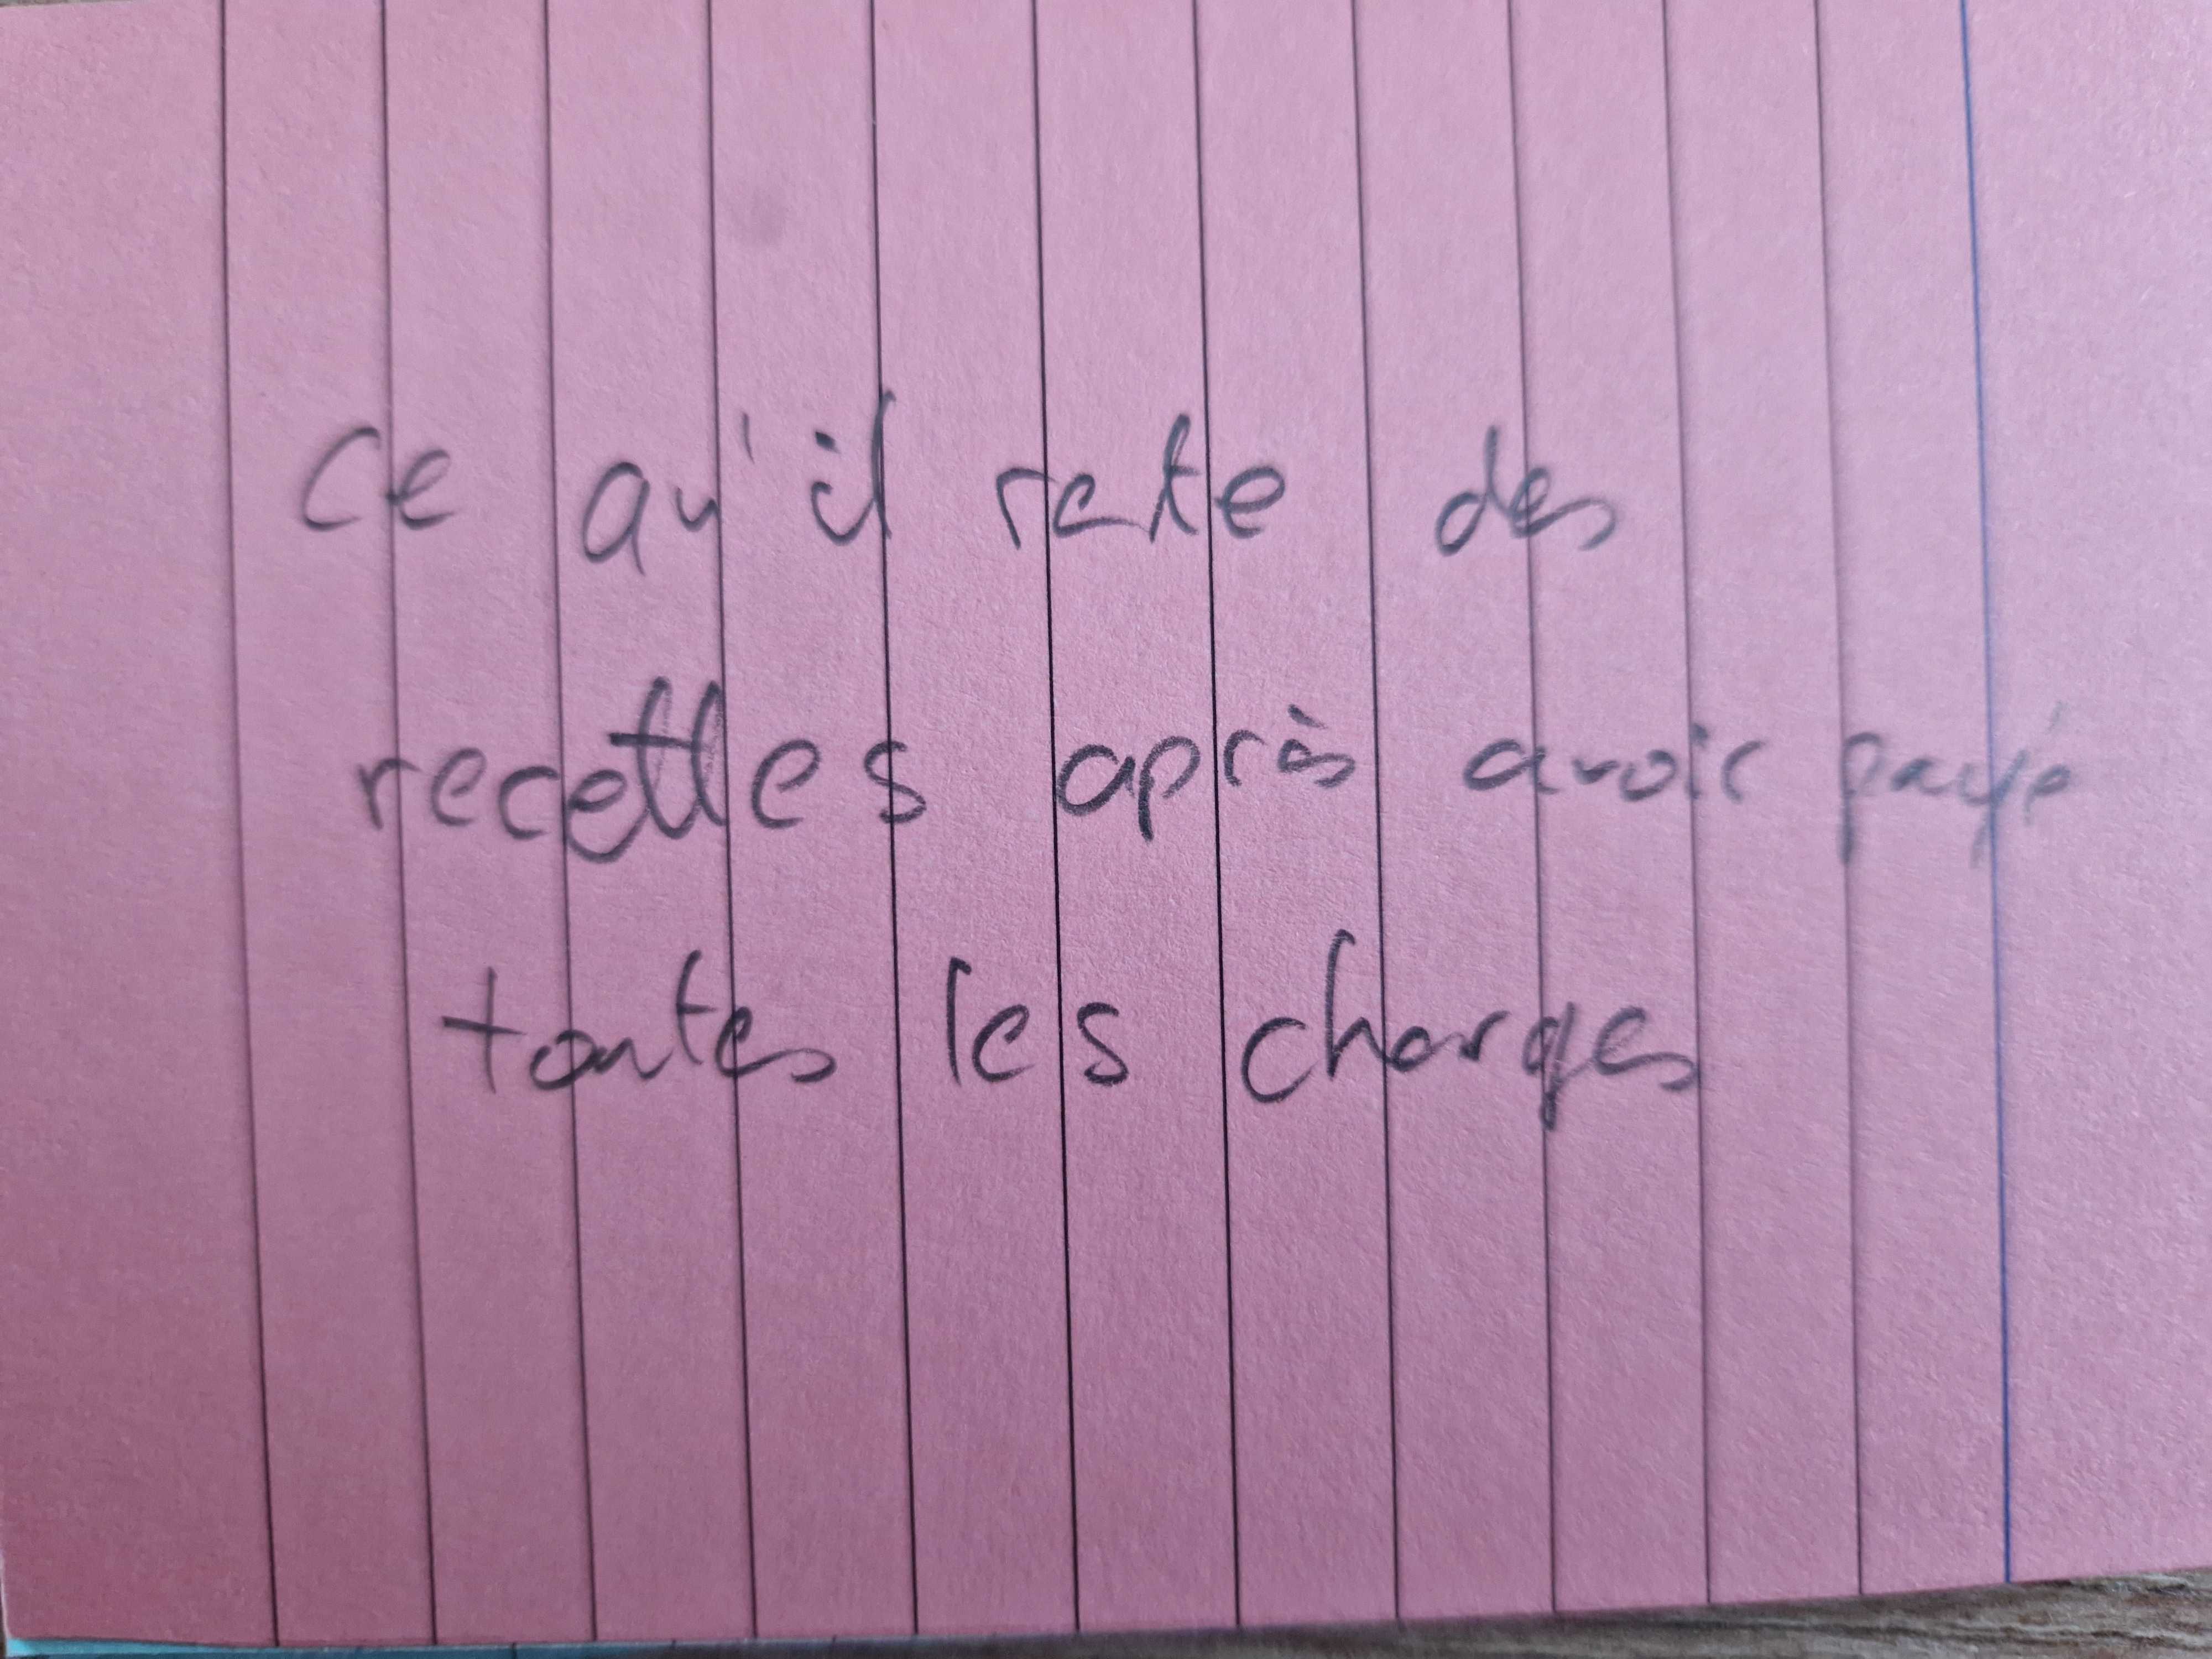 Ce qu'il reste des
recettes après avoir payé
toutes les charges